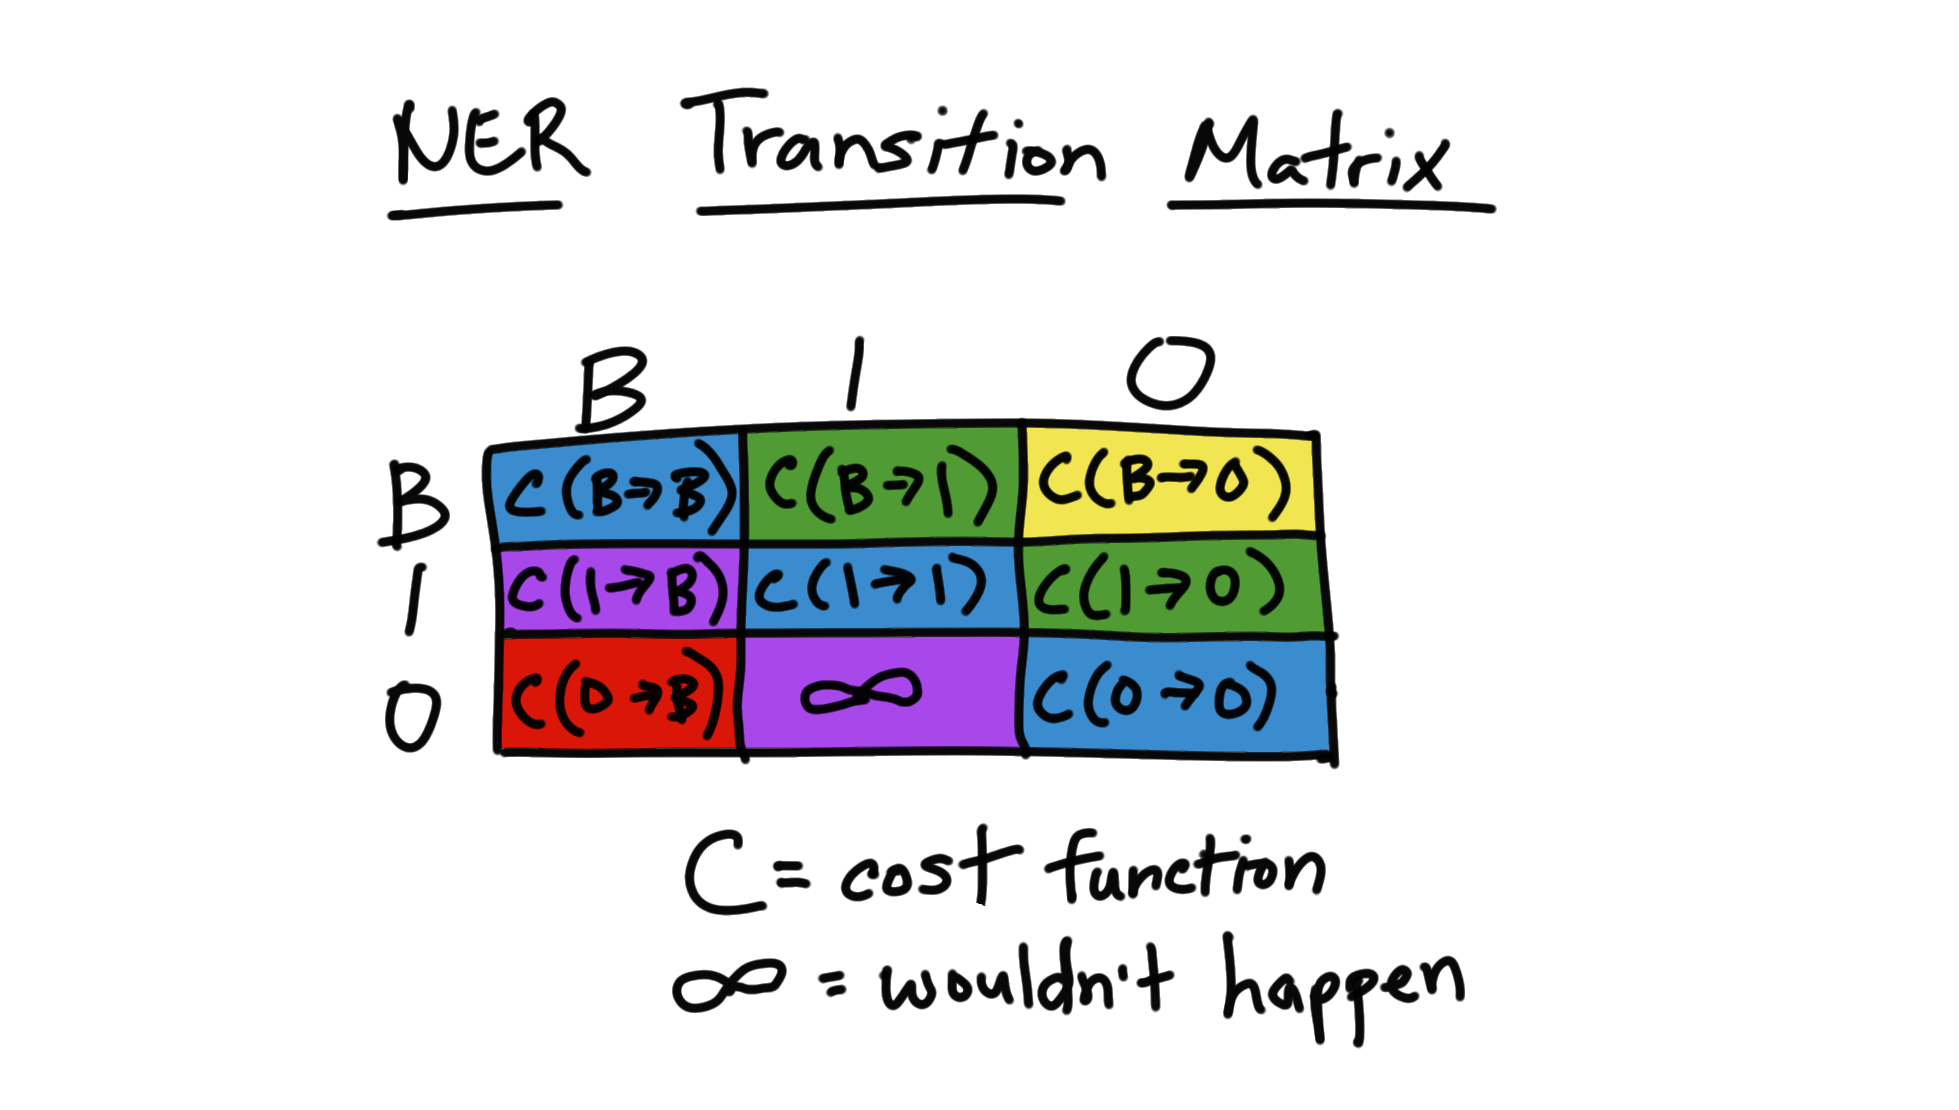 NER Transition Matrix
B I O
B C(B→B) C(B→I) C(B→O)
I C(I→B) C(I→I) C(I→O)
O C(O→B) ∞ C(O→O)
C = cost function
∞ = wouldn't happen